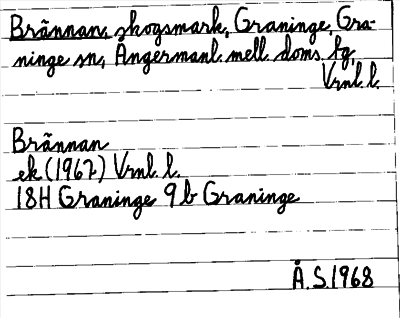 Brännan, skogsmark, Graninge, Gra-
ninge sn, Ångermanl. mell. doms. fg,
Vrnl. l.
Brännan
ek (1967) Vrnl. l.
18H Graninge 9 b Graninge
Å.S. 1968